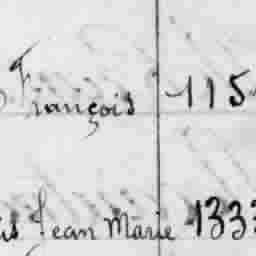 François 115
Jean Marie 1333